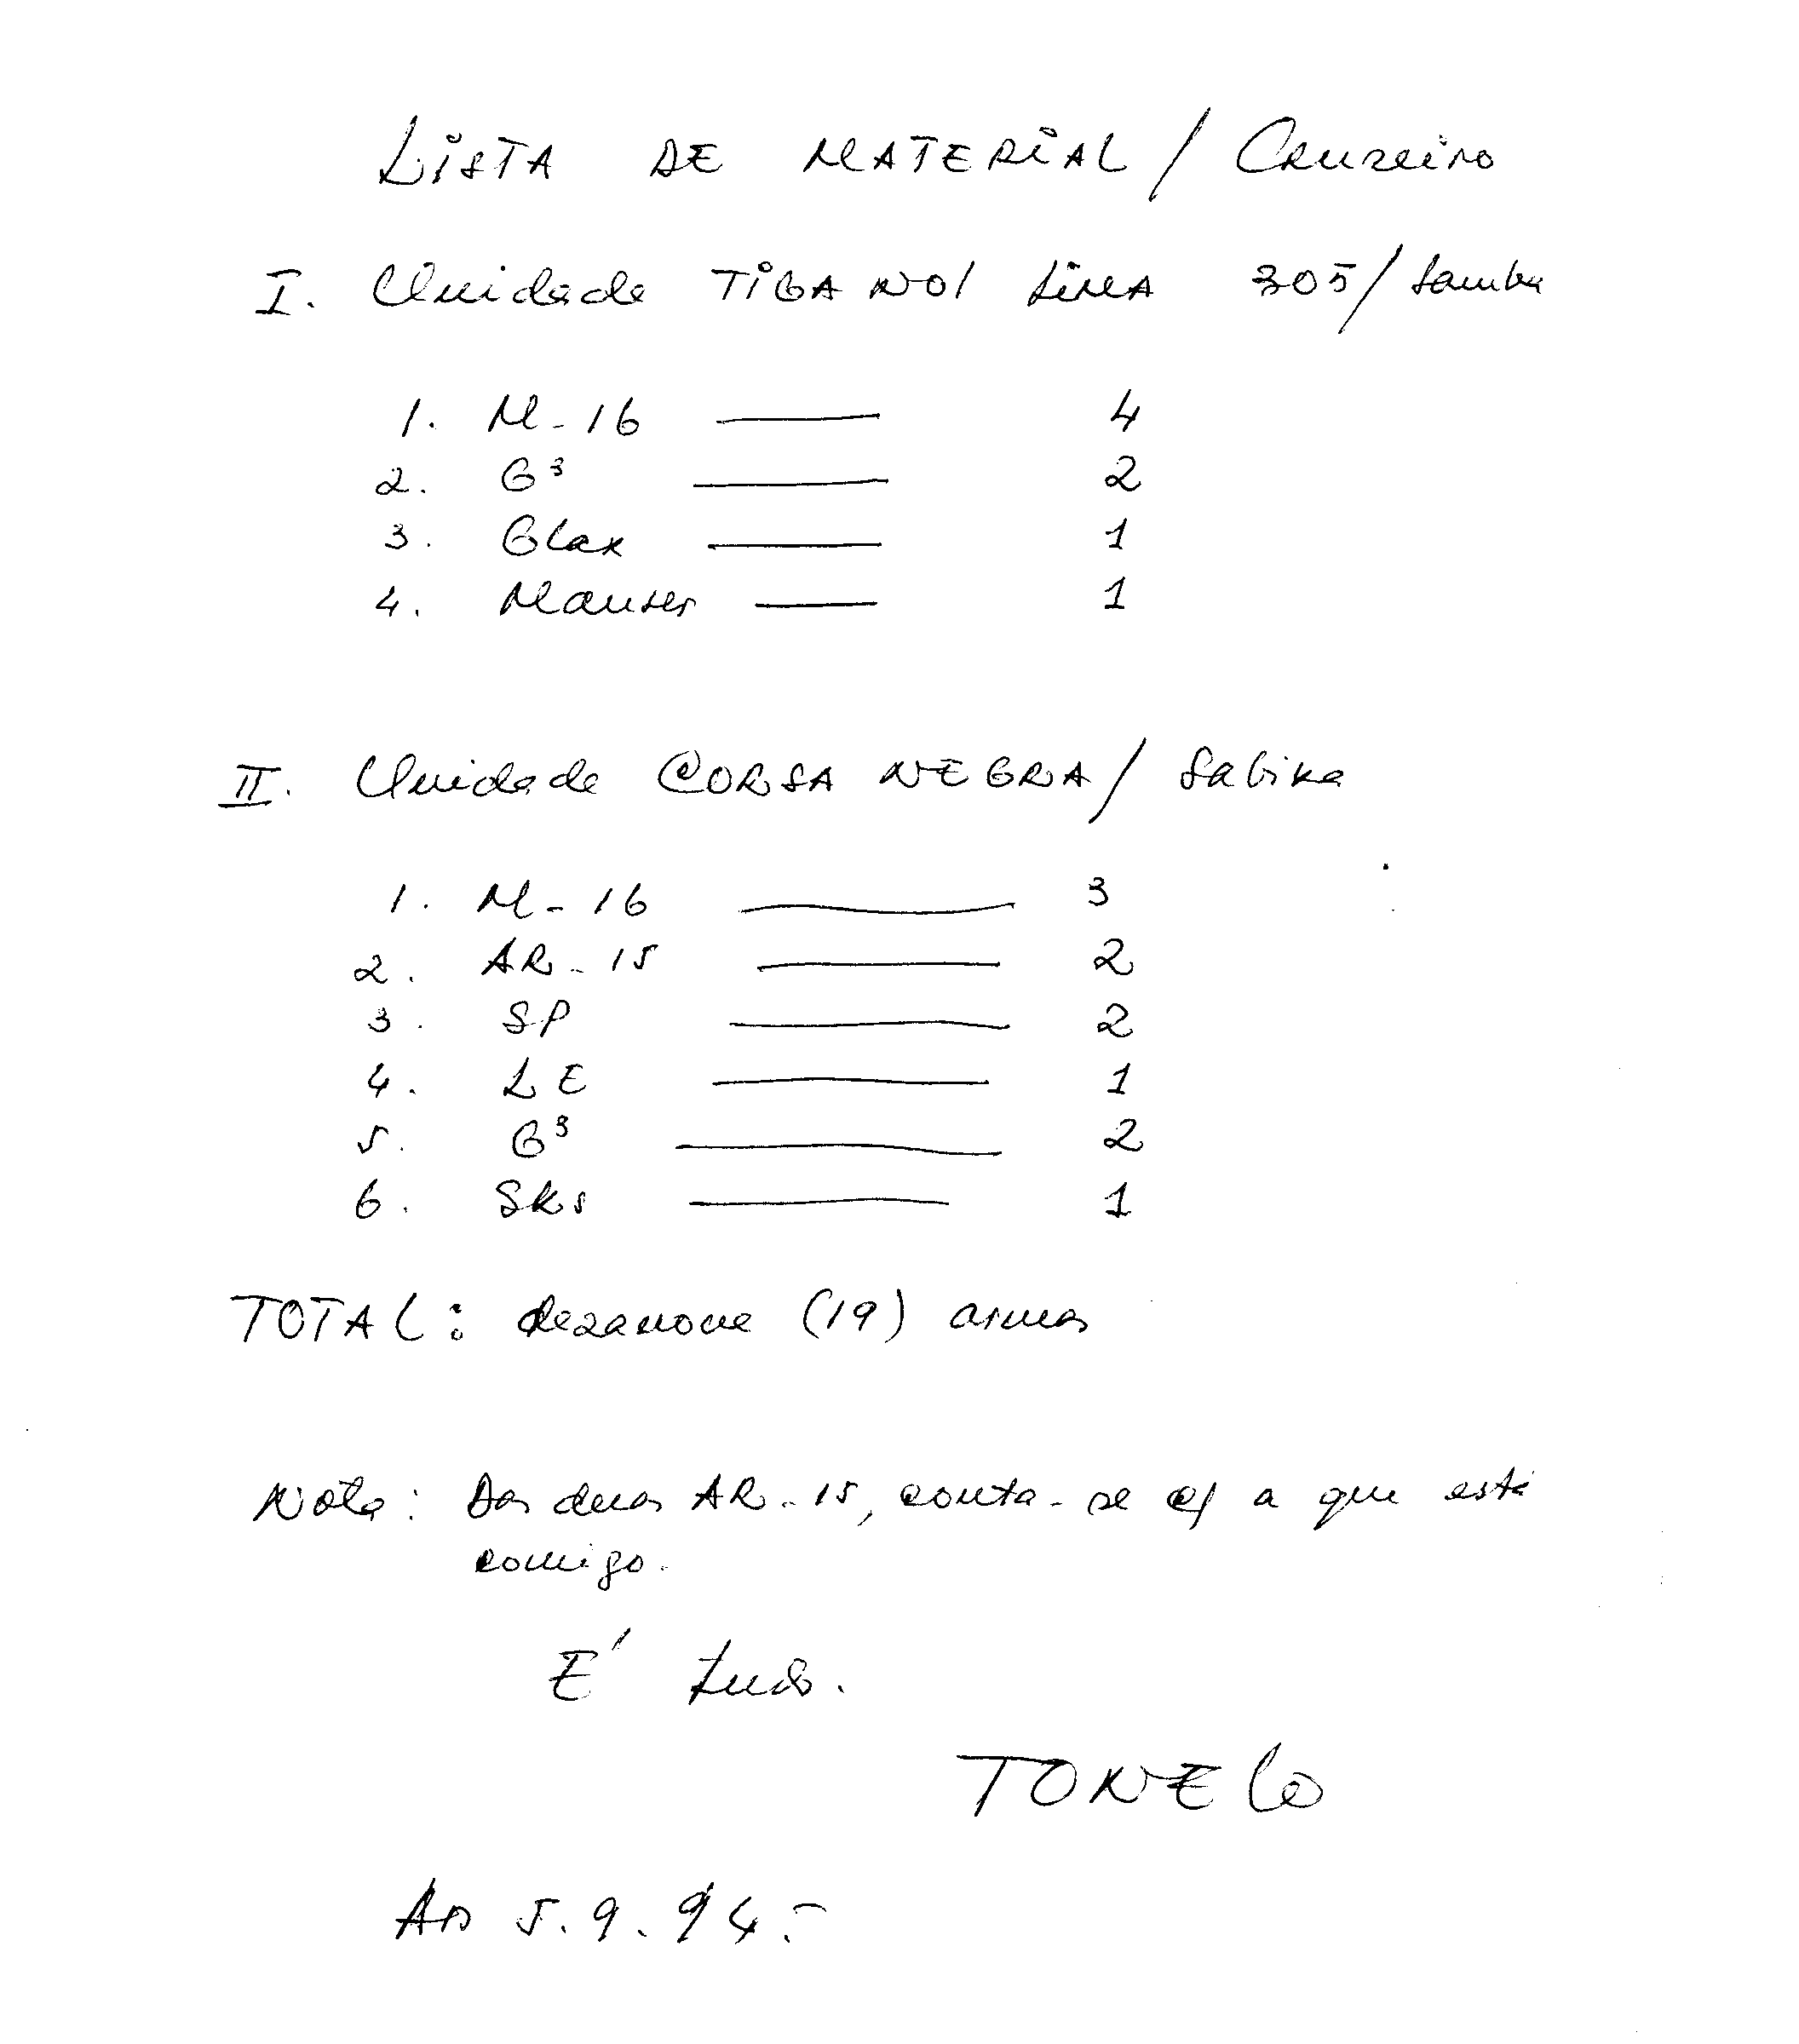 LISTA DE MATERIAL / Cruzeiro
I. Unidade TIGA NOI LIMA 305 / Samba
1. M-16 —— 4
2. G3 —— 2
3. Glax —— 1
4. Mauser —— 1
II. Unidade CORSA NEGRA / Sabika
1. M-16 —— 3
2. AR-15 —— 2
3. SP —— 2
4. LE —— 1
5. G3 —— 2
6. SKs —— 1
TOTAL: dezanove (19) armas
Nota: Das duas AR-15, conta-se c/ a que está
comigo.
É tudo.
TONELO
Ao 5.9.94.-